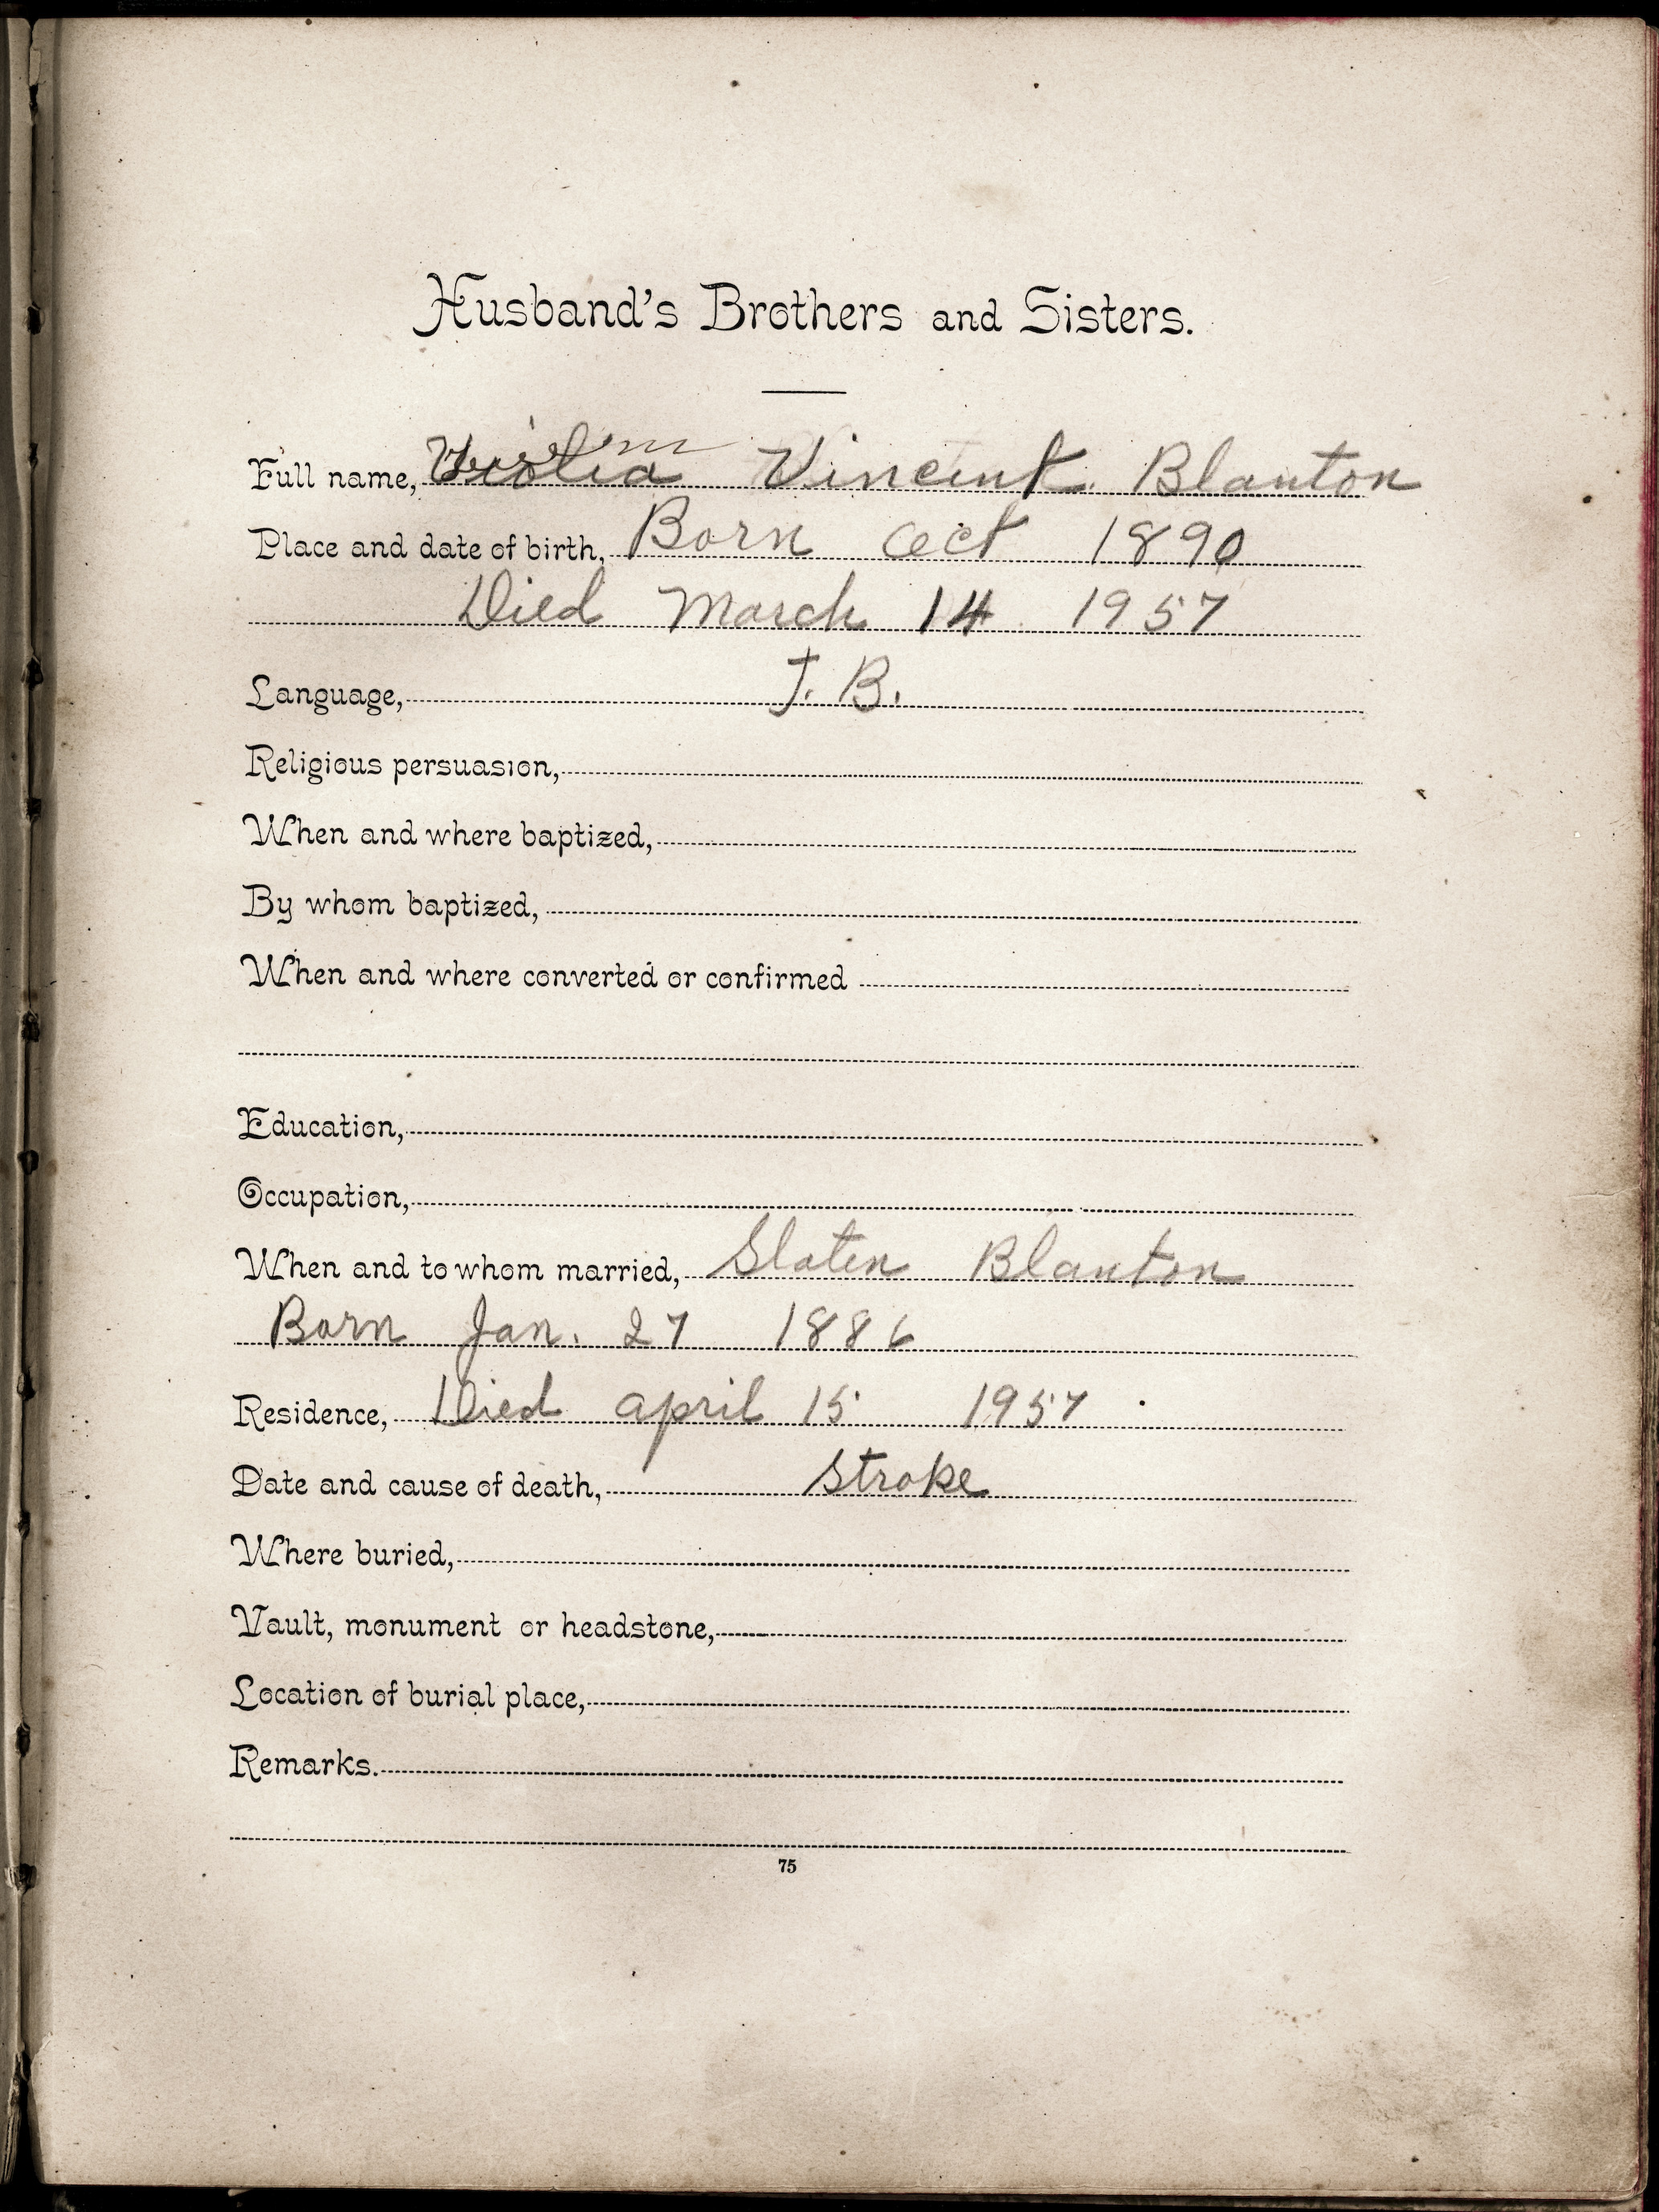 Husband's Brothers and Sisters.
Full name, Violia Vincent Blanton
Place and date of birth, Born Oct 1890
Died March 14 1957
Language, T. B.
Religious persuasion,
When and where baptized,
By whom baptized,
When and where converted or confirmed
Education,
Occupation,
When and to whom married, Slaten Blanton
Born Jan. 27 1886
Residence, Died April 15 1957
Date and cause of death, Stroke
Where buried,
Vault, monument or headstone,
Location of burial place,
Remarks.
75